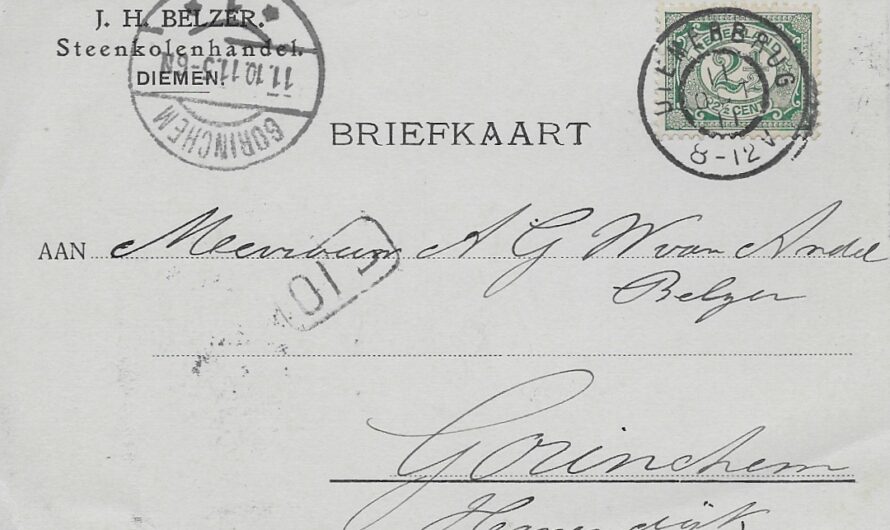 J. H. BELZER.
Steenkolenhandel.
DIEMEN.
GORINCHEM
11.10.11.5-6N
UILENERBRUG
8-12V
2½ CENT
BRIEFKAART
AAN Mevrouw A G W van Andel
Belzer
Gorinchem